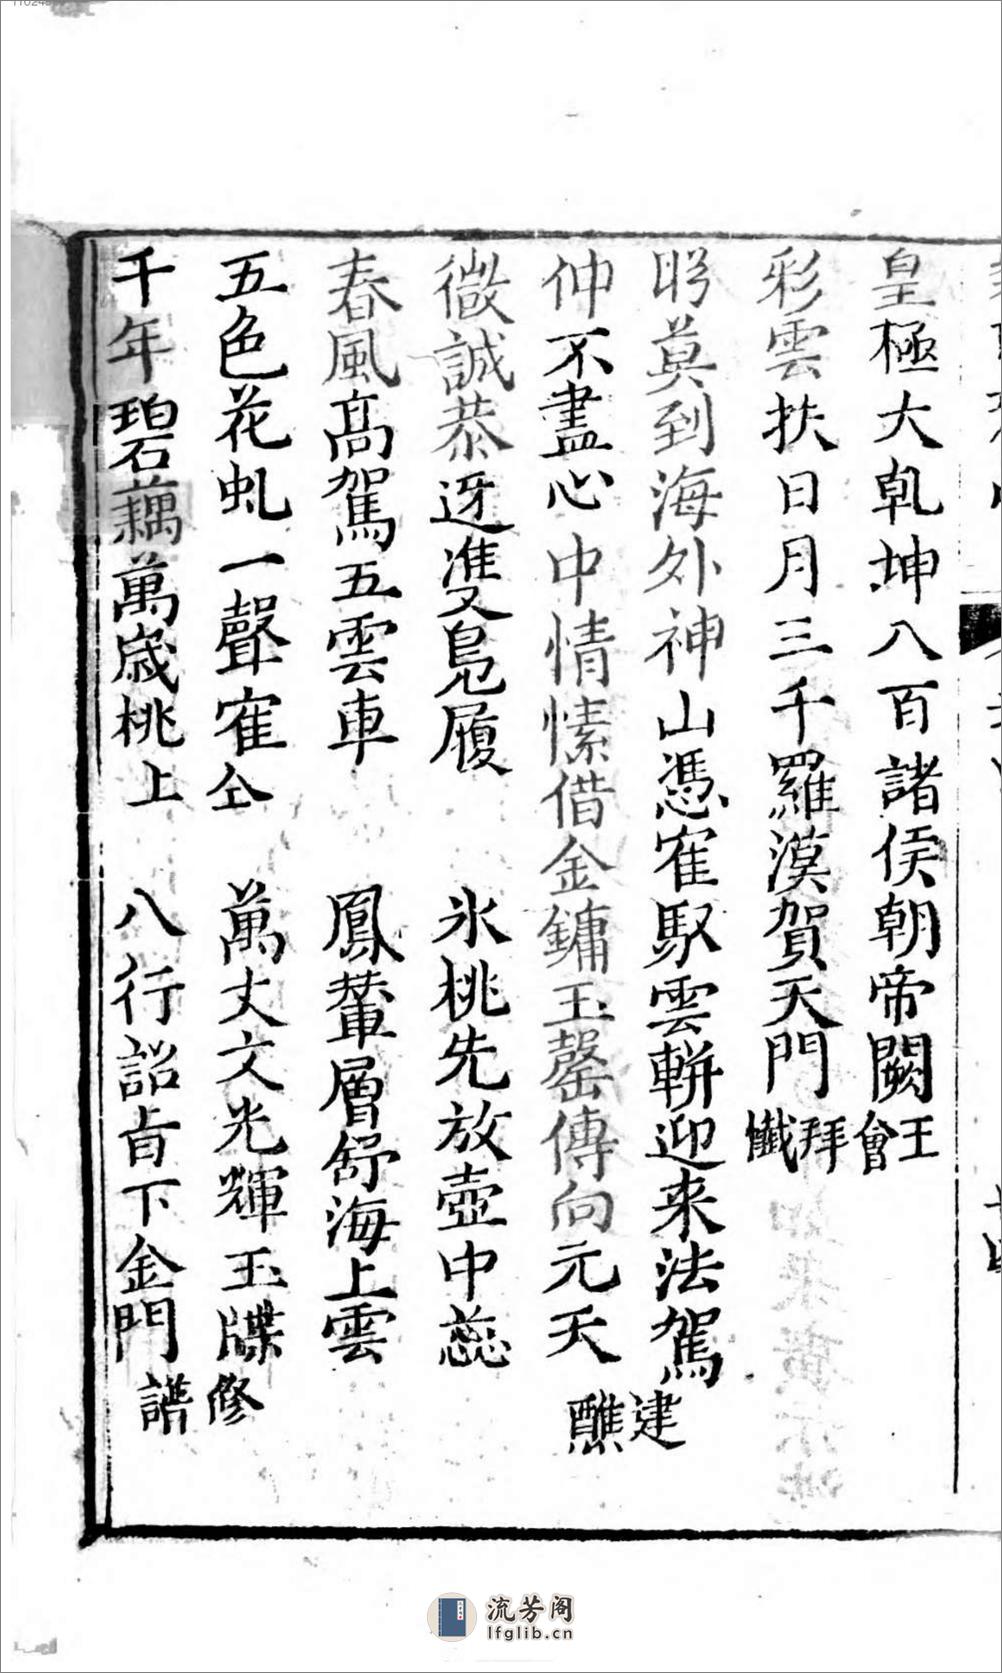 皇極大乹坤八百諸侯朝帝闕王會
彩雲扶日月三千羅漠賀天門拜懺
盻莫到海外神山憑寉馭雲軿迎来法駕建
仲不盡心中情愫借金鏞玉罄傳向元天醮
微誠恭迓𨿽鳧履 氷桃先放壺中蕊
春風高駕五雲車 鳳輦層舒海上雲
五色花虬一聲寉仝 萬丈文光輝玉牒修
千年碧藕萬歳桃上 八行詔㫖下金門譜
流芳阁
lfglib.cn